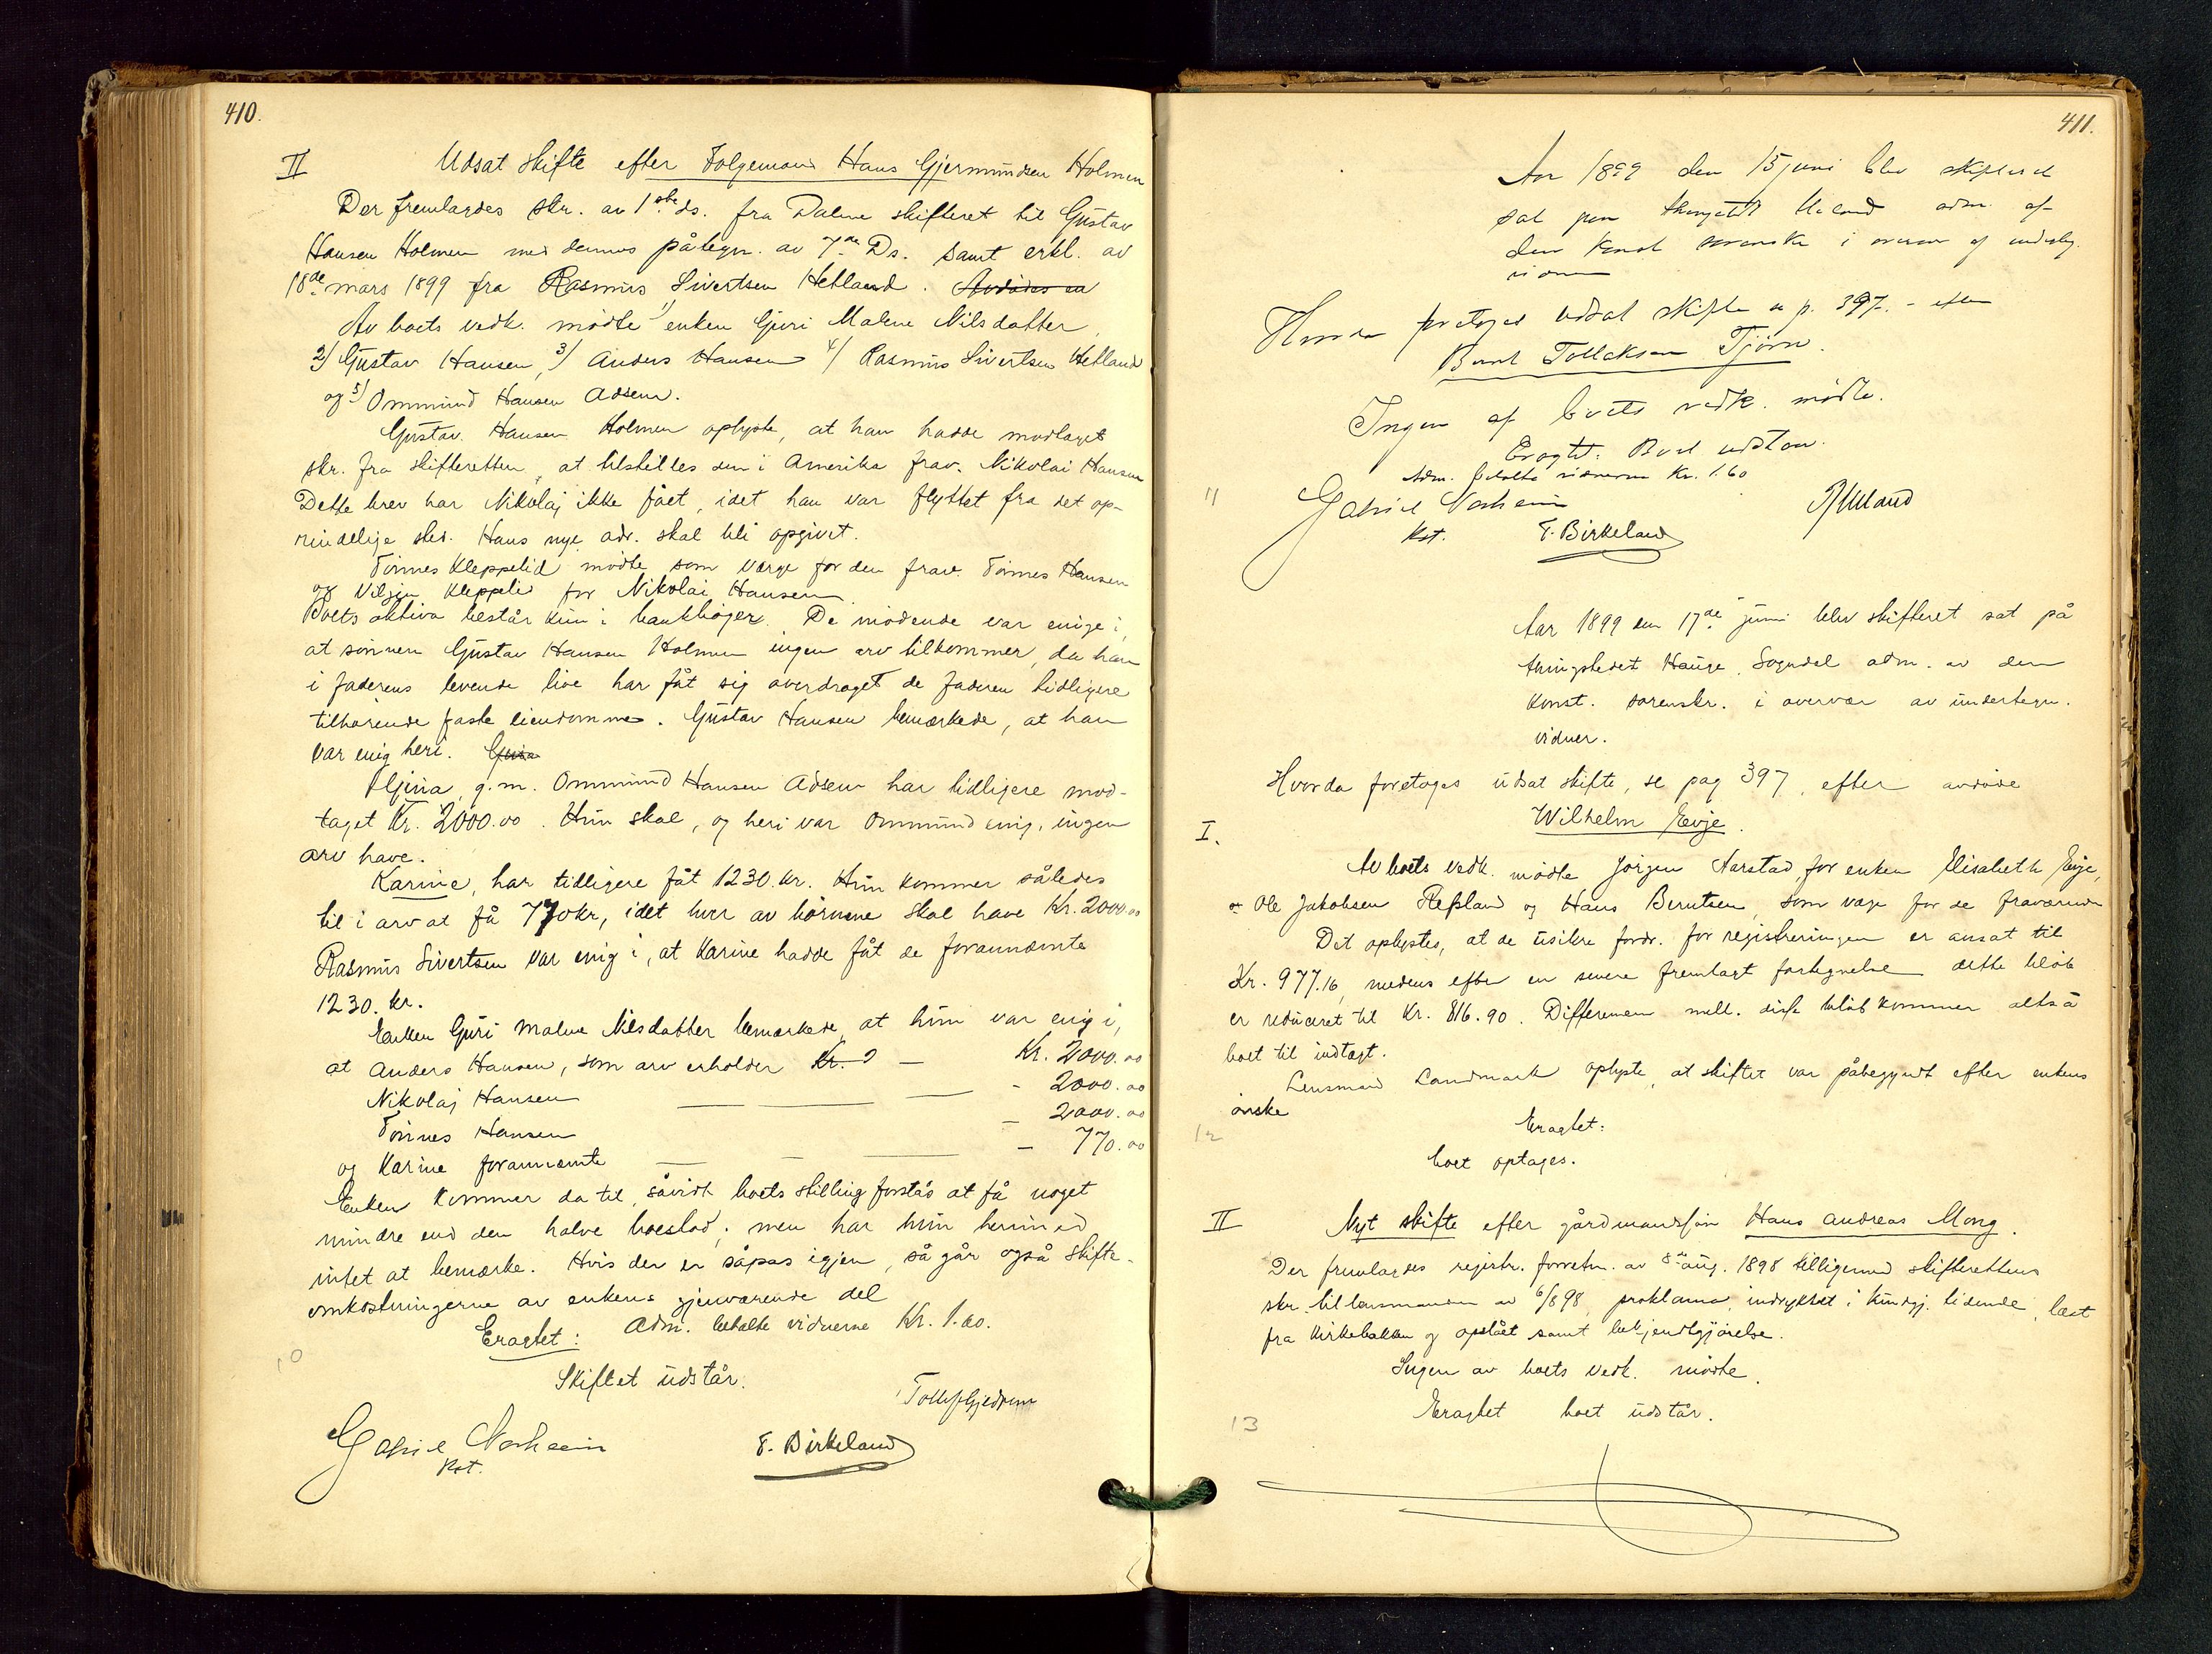 410.
II Udsat skifte efter Folgemand Hans Gjermundsen Holmen
Der fremlagdes skr. av 1ste ds. fra Dalene skifteret til Gustav
Hansen Holmen med dennes påtegn. av 7de Ds. samt erkl. av
18de mars 1899 fra Rasmus Sivertsen Hetland.
Av boets vedk. mødte 1) enken Guri Malene Nilsdatter,
2) Gustav Hansen, 3) Anders Hansen 4) Rasmus Sivertsen Hetland
og 5) Ommund Hansen Adsem.
Gustav Hansen Holmen oplyste, at han hadde modtaget
skr. fra skifteretten, at tilstilles den i Amerika frav. Nikolai Hansen
Dette brev har Nikolaj ikke fået, idet han var flyttet fra det op-
rindelige sted. Hans nye adr. skal bli opgivet.
Tønnes Kleppelid mødte som værge for den frav. Tønnes Hansen
og Kleppelid for Nikolai Hansen
Boets aktiva består kun i bankbøger. De mødende var enige i,
at sønnen Gustav Hansen Holmen ingen arv tilkommer, da han
i faderens levende live har fåt sig overdraget de faderen tidligere
tilhørende faste eiendomme. Gustav Hansen bemærkede, at han
var enig heri.
g. m. Ommund Hansen Adsem har tidligere mod-
taget Kr. 2000.00. Hun skal, og heri var Ommund enig, ingen
arv have.
Karine, har tidligere fåt 1230. kr. Hun kommer således
til i arv at få 770 kr, idet hver av børnene skal have Kr. 2000.00
Rasmus Sivertsen var enig i, at Karine hadde fåt de forannævnte
1230. kr.
Enken Guri Malene Nilsdatter bemærkede, at hun var enig i,
at Anders Hansen, som arv erholder Kr. 2 — Kr. 2000.00
Nikolaj Hansen — — - 2000.00
Tønnes Hansen — 2000.00
og Karine forannævnte — — — — 770.00
Enken kommer da til, såvidt boets stilling forstås at få noget
mindre end den halve boeslod; men har hun herimod
intet at bemærke. Hvis der er såpas igjen, så går også skifte-
omkostningerne av enkens gjenværende del
Eragtet: Adm. betalte vidnerne Kr. 1.60.
10
Skiftet udstår.
Gabriel Norheim
Kst.
F. Birkeland
411.
Aar 1899 den 15 juni blev skifteret
sat paa thingstedet Ueland adm. af
den konst sorenskr. i overvær af underteg.
vidner
Hvorda foretoges udsat skifte se p. 397. - efter
Bernt Tollaksen Tjørn.
Ingen af boets vedk. mødte.
Eragtet: Boet udstaar.
Adm. betalte vidnerne Kr. 1.60
11
Gabriel Norheim
Kst.
F. Birkeland
Aar 1899 den 17de juni blev skifteret sat på
thingstedet Hauge, Sogndal adm. av den
Konst. sorenskr. i overvær av undertegn.
vidner.
Hvorda foretoges udsat skifte, se pag 397, efter avdøde
I. Wilhelm Evje.
Av boets vedk. mødte Jørgen Aarstad, for enken Elisabeth Evje,
Ole Jakobsen Refsland og Hans Berntsen, som værge for de fraværende
Det oplystes, at de usikre fordr. for registreringen er ansat til
Kr. 977.16, medens efter en senere fremlagt fortegnelse dette beløb
er reduceret til Kr. 816.90. Differensen mell. disse beløb kommer altså
boet til indtægt.
Lensmand Landmark oplyste, at skiftet var påbegyndt efter enkens
ønske
12
Eragtet:
boet optages.
II Nyt skifte efter gårdmandssøn Hans Andreas Mong.
Der fremlagdes registr. forretn. av 8de aug. 1898 tilligemed skifterettens
skr. til lensmanden av 6/8 98, proklama, indrykket i Kundgj. tidende, læst
fra kirkebakken og opslået samt bekjendtgjørelse.
Ingen av boets vedk. mødte.
Eragtet boet udstår.
13